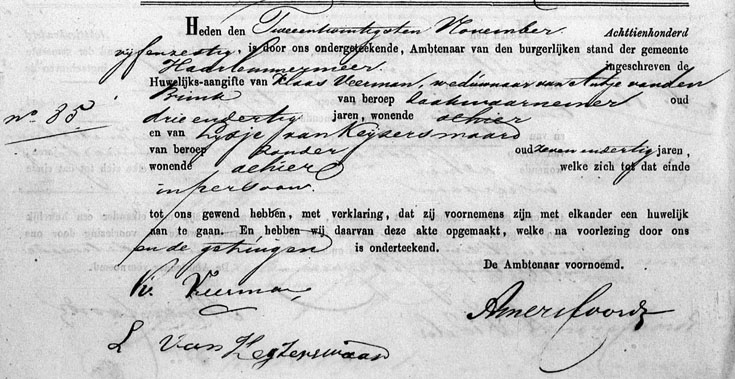 Heden den Tweeentwintigsten November Achttienhonderd
vijfenzestig, is door ons ondergeteekende, Ambtenaar van den burgerlijken stand der gemeente
Haarlemmermeer ingeschreven de
Huwelijks-aangifte van Klaas Veerman, weduwnaar van Antje van den
Brink van beroep zaakwaarnemer oud
no. 85 drieendertig jaren, wonende alhier
en van Lijdje van Keijzerswaard
van beroep zonder oud zevenendertig jaren,
wonende alhier welke zich tot dat einde
in persoon.
tot ons gewend hebben, met verklaring, dat zij voornemens zijn met elkander een huwelijk
aan te gaan. En hebben wij daarvan deze akte opgemaakt, welke na voorlezing door ons
en de getuigen is onderteekend.
De Ambtenaar voornoemd.
K. Veerman,
Amersfoordt
L Van